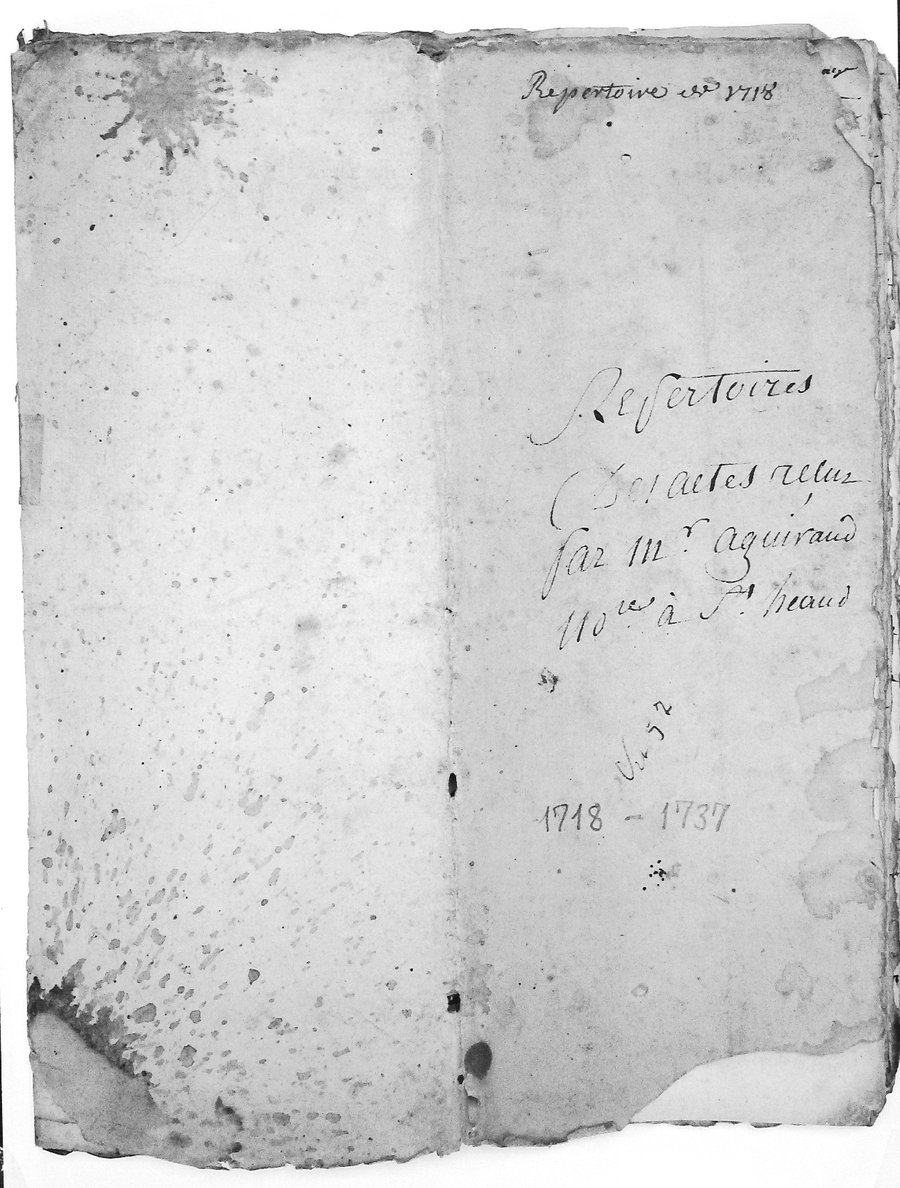 Repertoire de 1718
Repertoires
Des actes reçuz
par mr. aguiraud
nore à St. heand
1718 - 1737